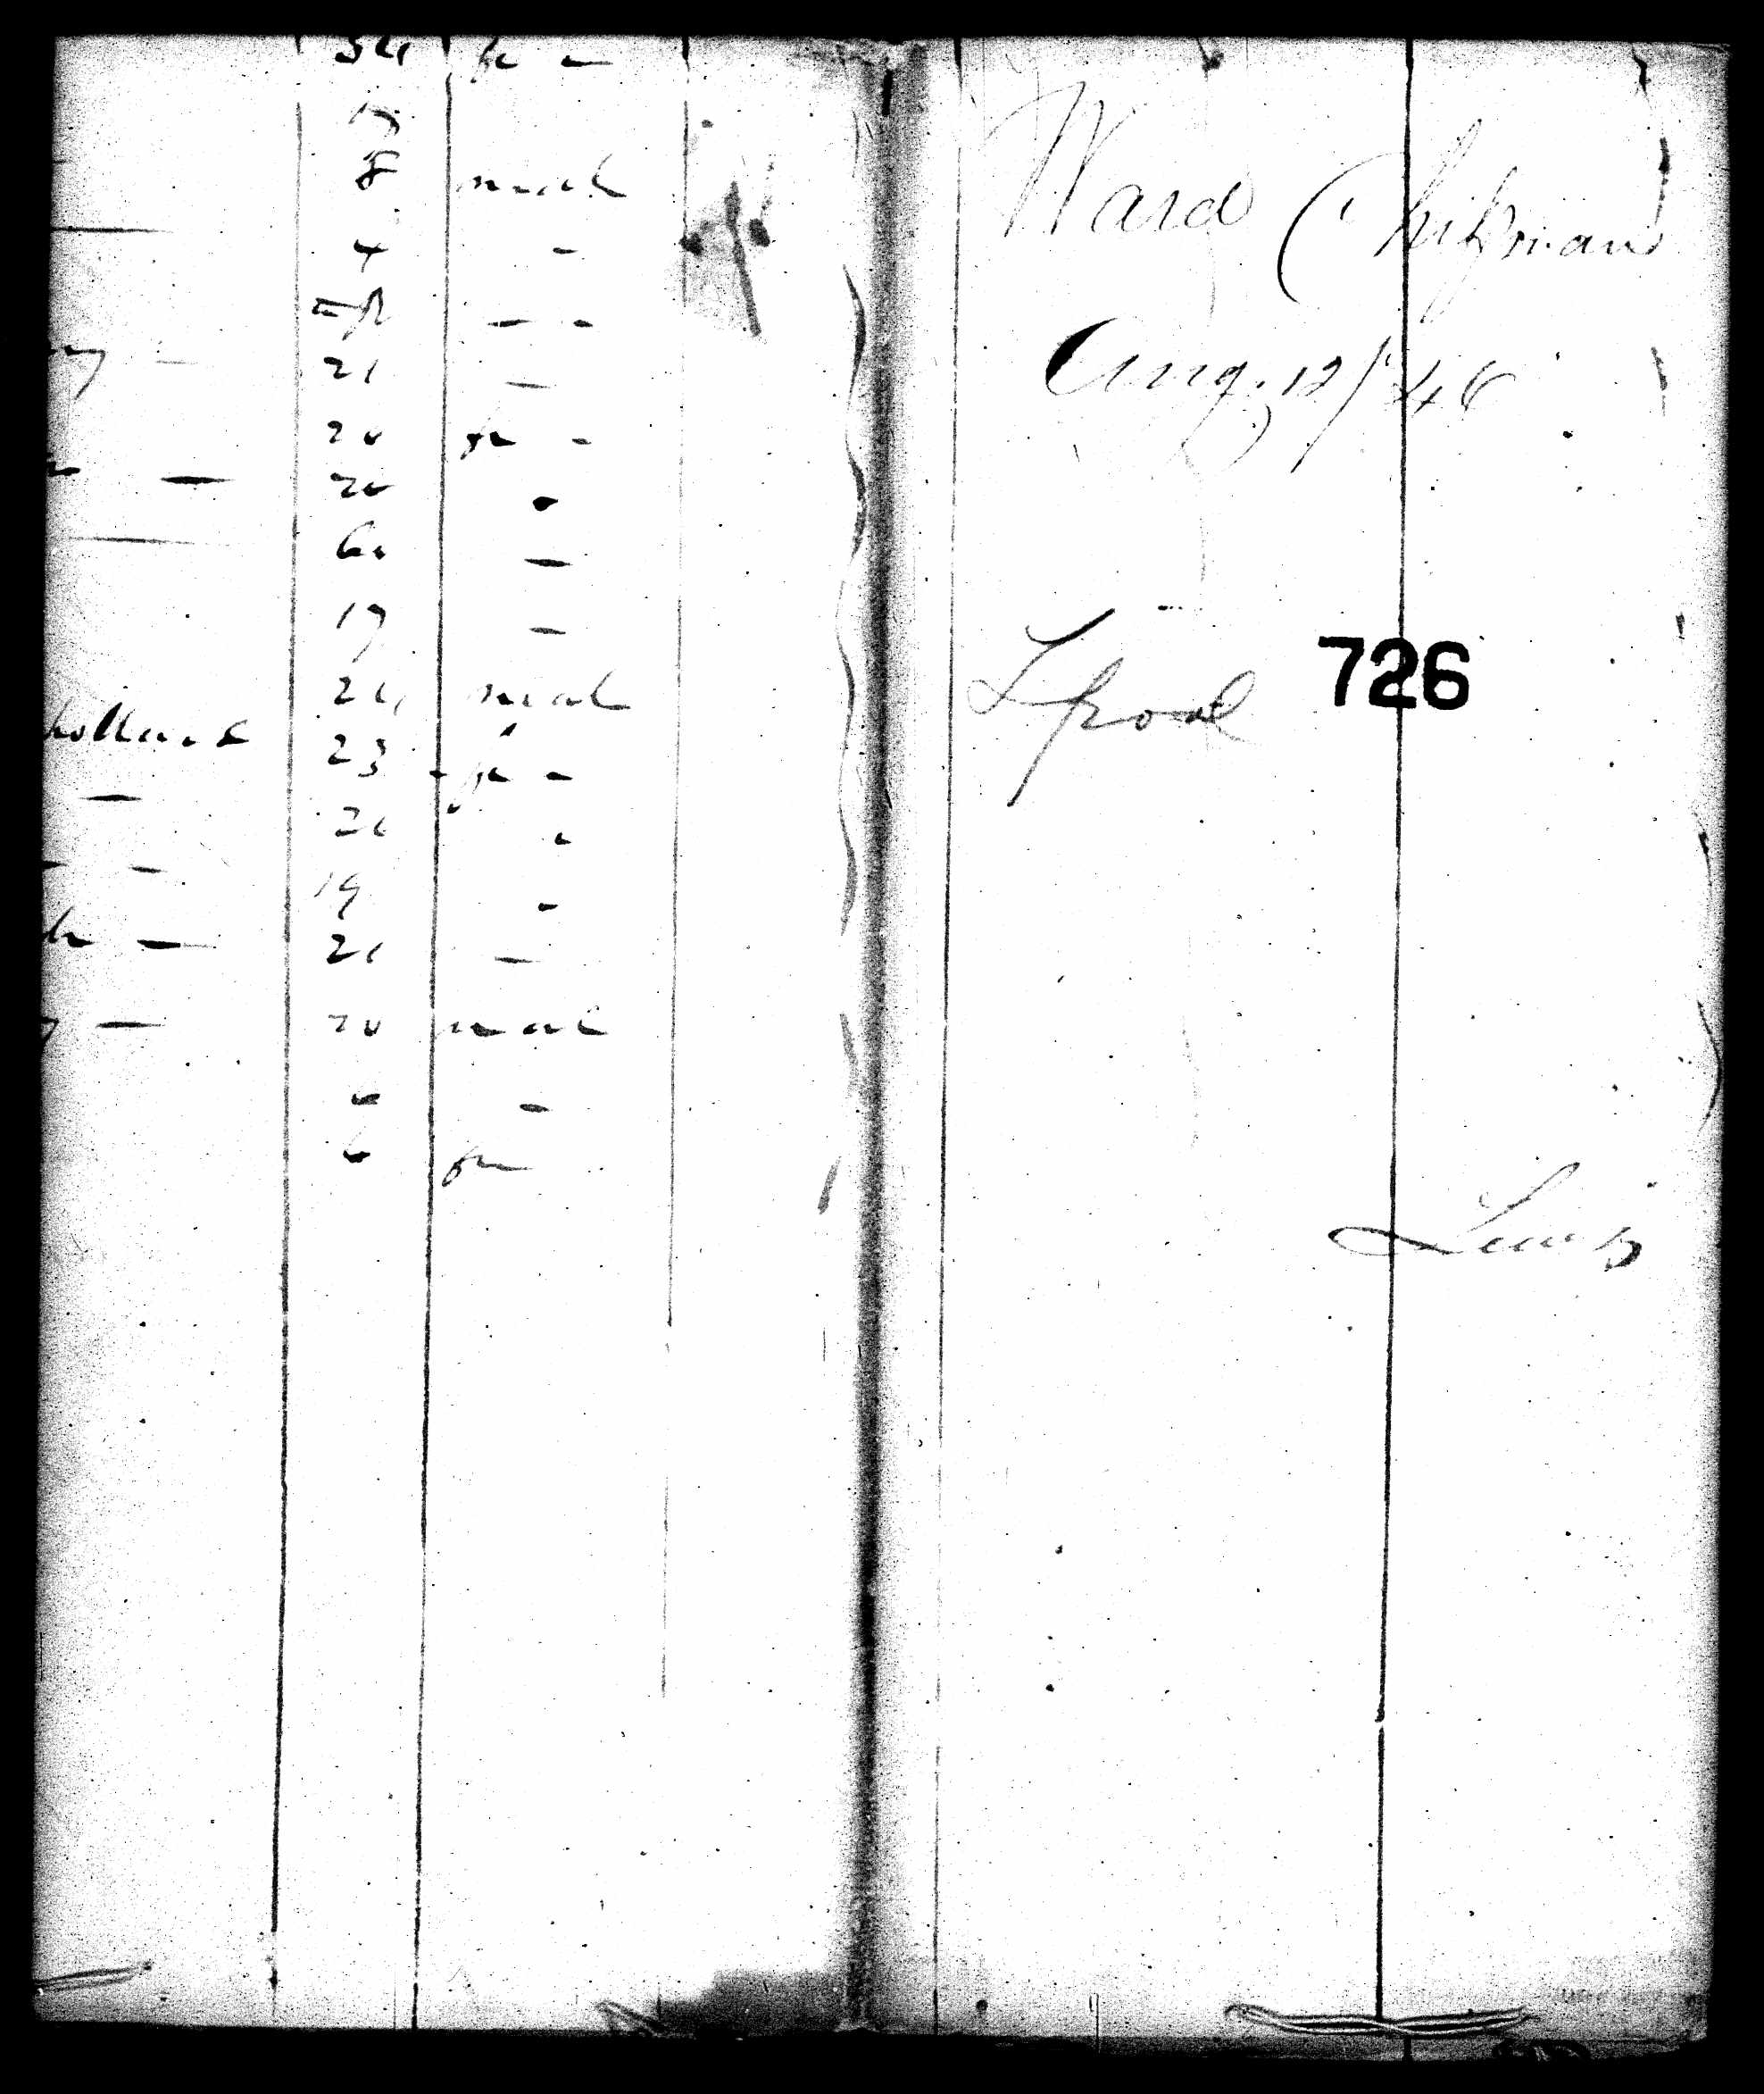 34 fe -
17
8 mal
4 -
21 -
20 fe -
20
60 -
17 -
21 mal
holland 23 fe -
21
19 -
21 -
20 mal
-
6 fe
Ward Chipman
Aug. 12/46
Lpool
726
Lewis